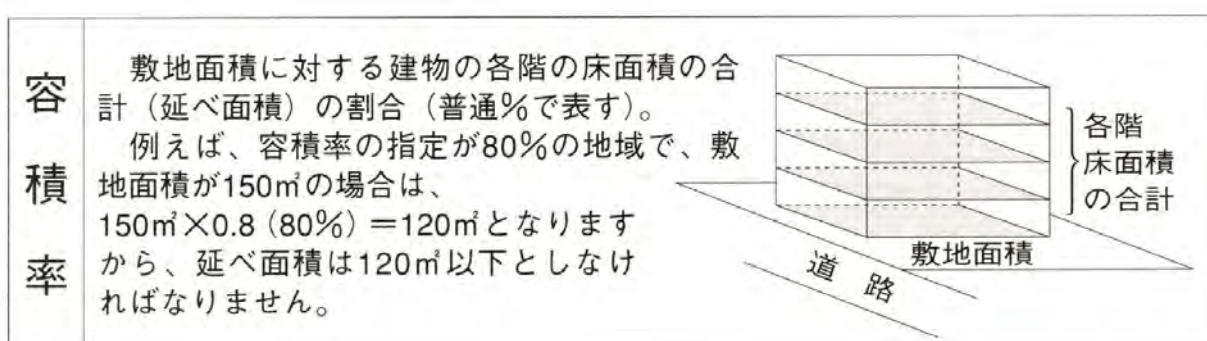 容積率
敷地面積に対する建物の各階の床面積の合
計（延べ面積）の割合（普通％で表す）。
例えば、容積率の指定が80％の地域で、敷
地面積が150㎡の場合は、
150㎡×0.8（80％）＝120㎡となります
から、延べ面積は120㎡以下としなけ
ればなりません。
各階
床面積
の合計
敷地面積
道路